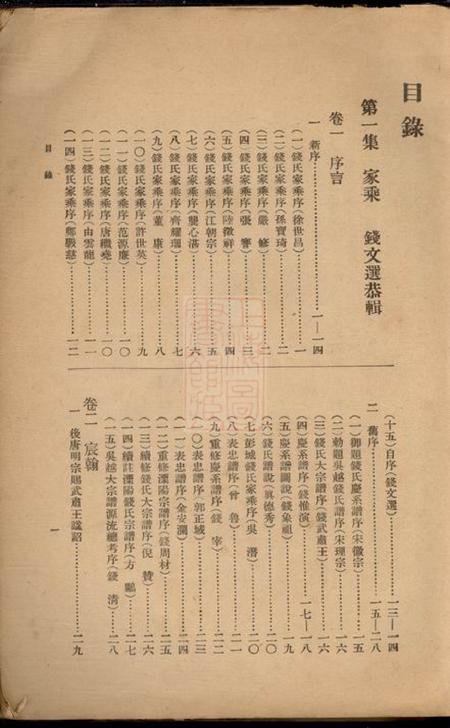 目錄
第一集 家乘 錢文選恭輯
卷一 序言
一 新序……一—一四
(一)錢氏家乘序(徐世昌)……一
(二)錢氏家乘序(孫寶琦)……二
(三)錢氏家乘序(嚴修)……二
(四)錢氏家乘序(張謇)……三
(五)錢氏家乘序(陸徵祥)……四
(六)錢氏家乘序(江朝宗)……五
(七)錢氏家乘序(龔心湛)……六
(八)錢氏家乘序(齊耀珊)……七
(九)錢氏家乘序(董康)……八
(一〇)錢氏家乘序(許世英)……九
(一一)錢氏家乘序(范源廉)……一〇
(一二)錢氏家乘序(唐繼堯)……一〇
(一三)錢氏家乘序(由雲龍)……一一
(一四)錢氏家乘序(鄭戩慈)……一二
目錄
(十五)自序(錢文選)……一三—一四
二 舊序……一五—二八
(一)御題錢氏慶系譜序(宋徽宗)……一五
(二)勅題吳越錢氏譜序(宋理宗)……一六
(三)錢氏大宗譜序(錢武肅王)……一六
(四)慶系譜序(錢惟演)……一七—一八
(五)慶系譜圖說(錢象祖)……一九
(六)錢氏譜說(眞德秀)……二〇
(七)彭城錢氏家乘序(吳潛)……二〇
(八)表忠譜序(曾魯)……二一
(九)重修慶系譜序(錢宰)……二二
(一〇)表忠譜序(郭正域)……二三
(一一)表忠譜序(金安瀾)……二四
(一二)重修溧陽宗譜序(錢周材)……二五
(一三)續修錢氏大宗譜序(倪贊)……二六
(一四)續註溧陽錢氏宗譜序(方鵬)……二七
(一五)吳越大宗譜源流總考序(錢清)……二八
卷二 宸翰
一 後唐明宗賜武肅王諡詔……二九
一